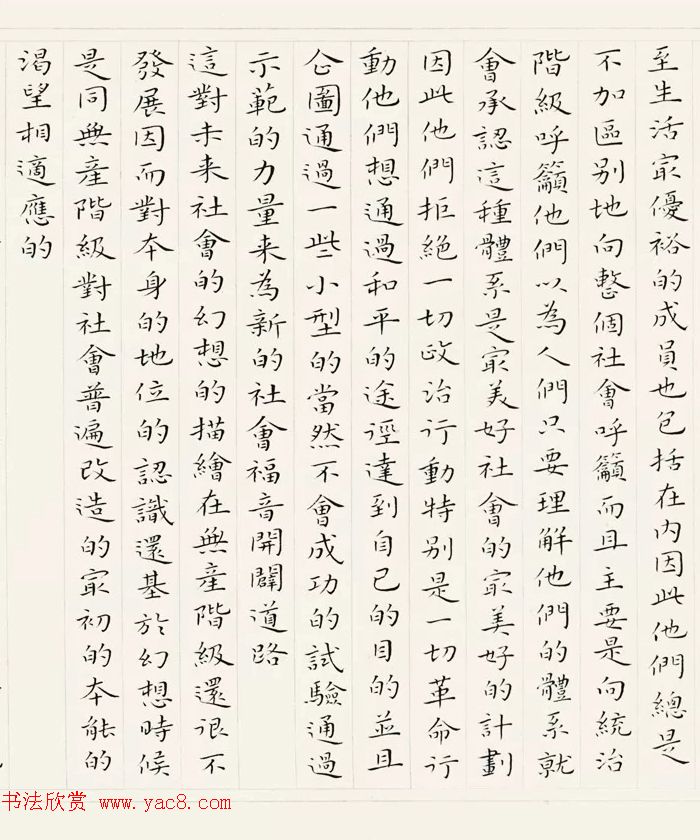 至生活最優裕的成員也包括在内因此他們總是
不加區别地向整個社會呼籲而且主要是向統治
階級呼籲他們以為人們只要理解他們的體系就
會承認這種體系是最美好社會的最美好的計劃
因此他們拒絶一切政治行動特别是一切革命行
動他們想通過和平的途徑達到自己的目的並且
企圖通過一些小型的當然不會成功的試驗通過
示範的力量来為新的社會福音開闢道路
這對未来社會的幻想的描繪在無産階級還很不
發展因而對本身的地位的認識還基於幻想時候
是同無産階級對社會普遍改造的最初的本能的
渴望相適應的
书法欣赏 www.yac8.com